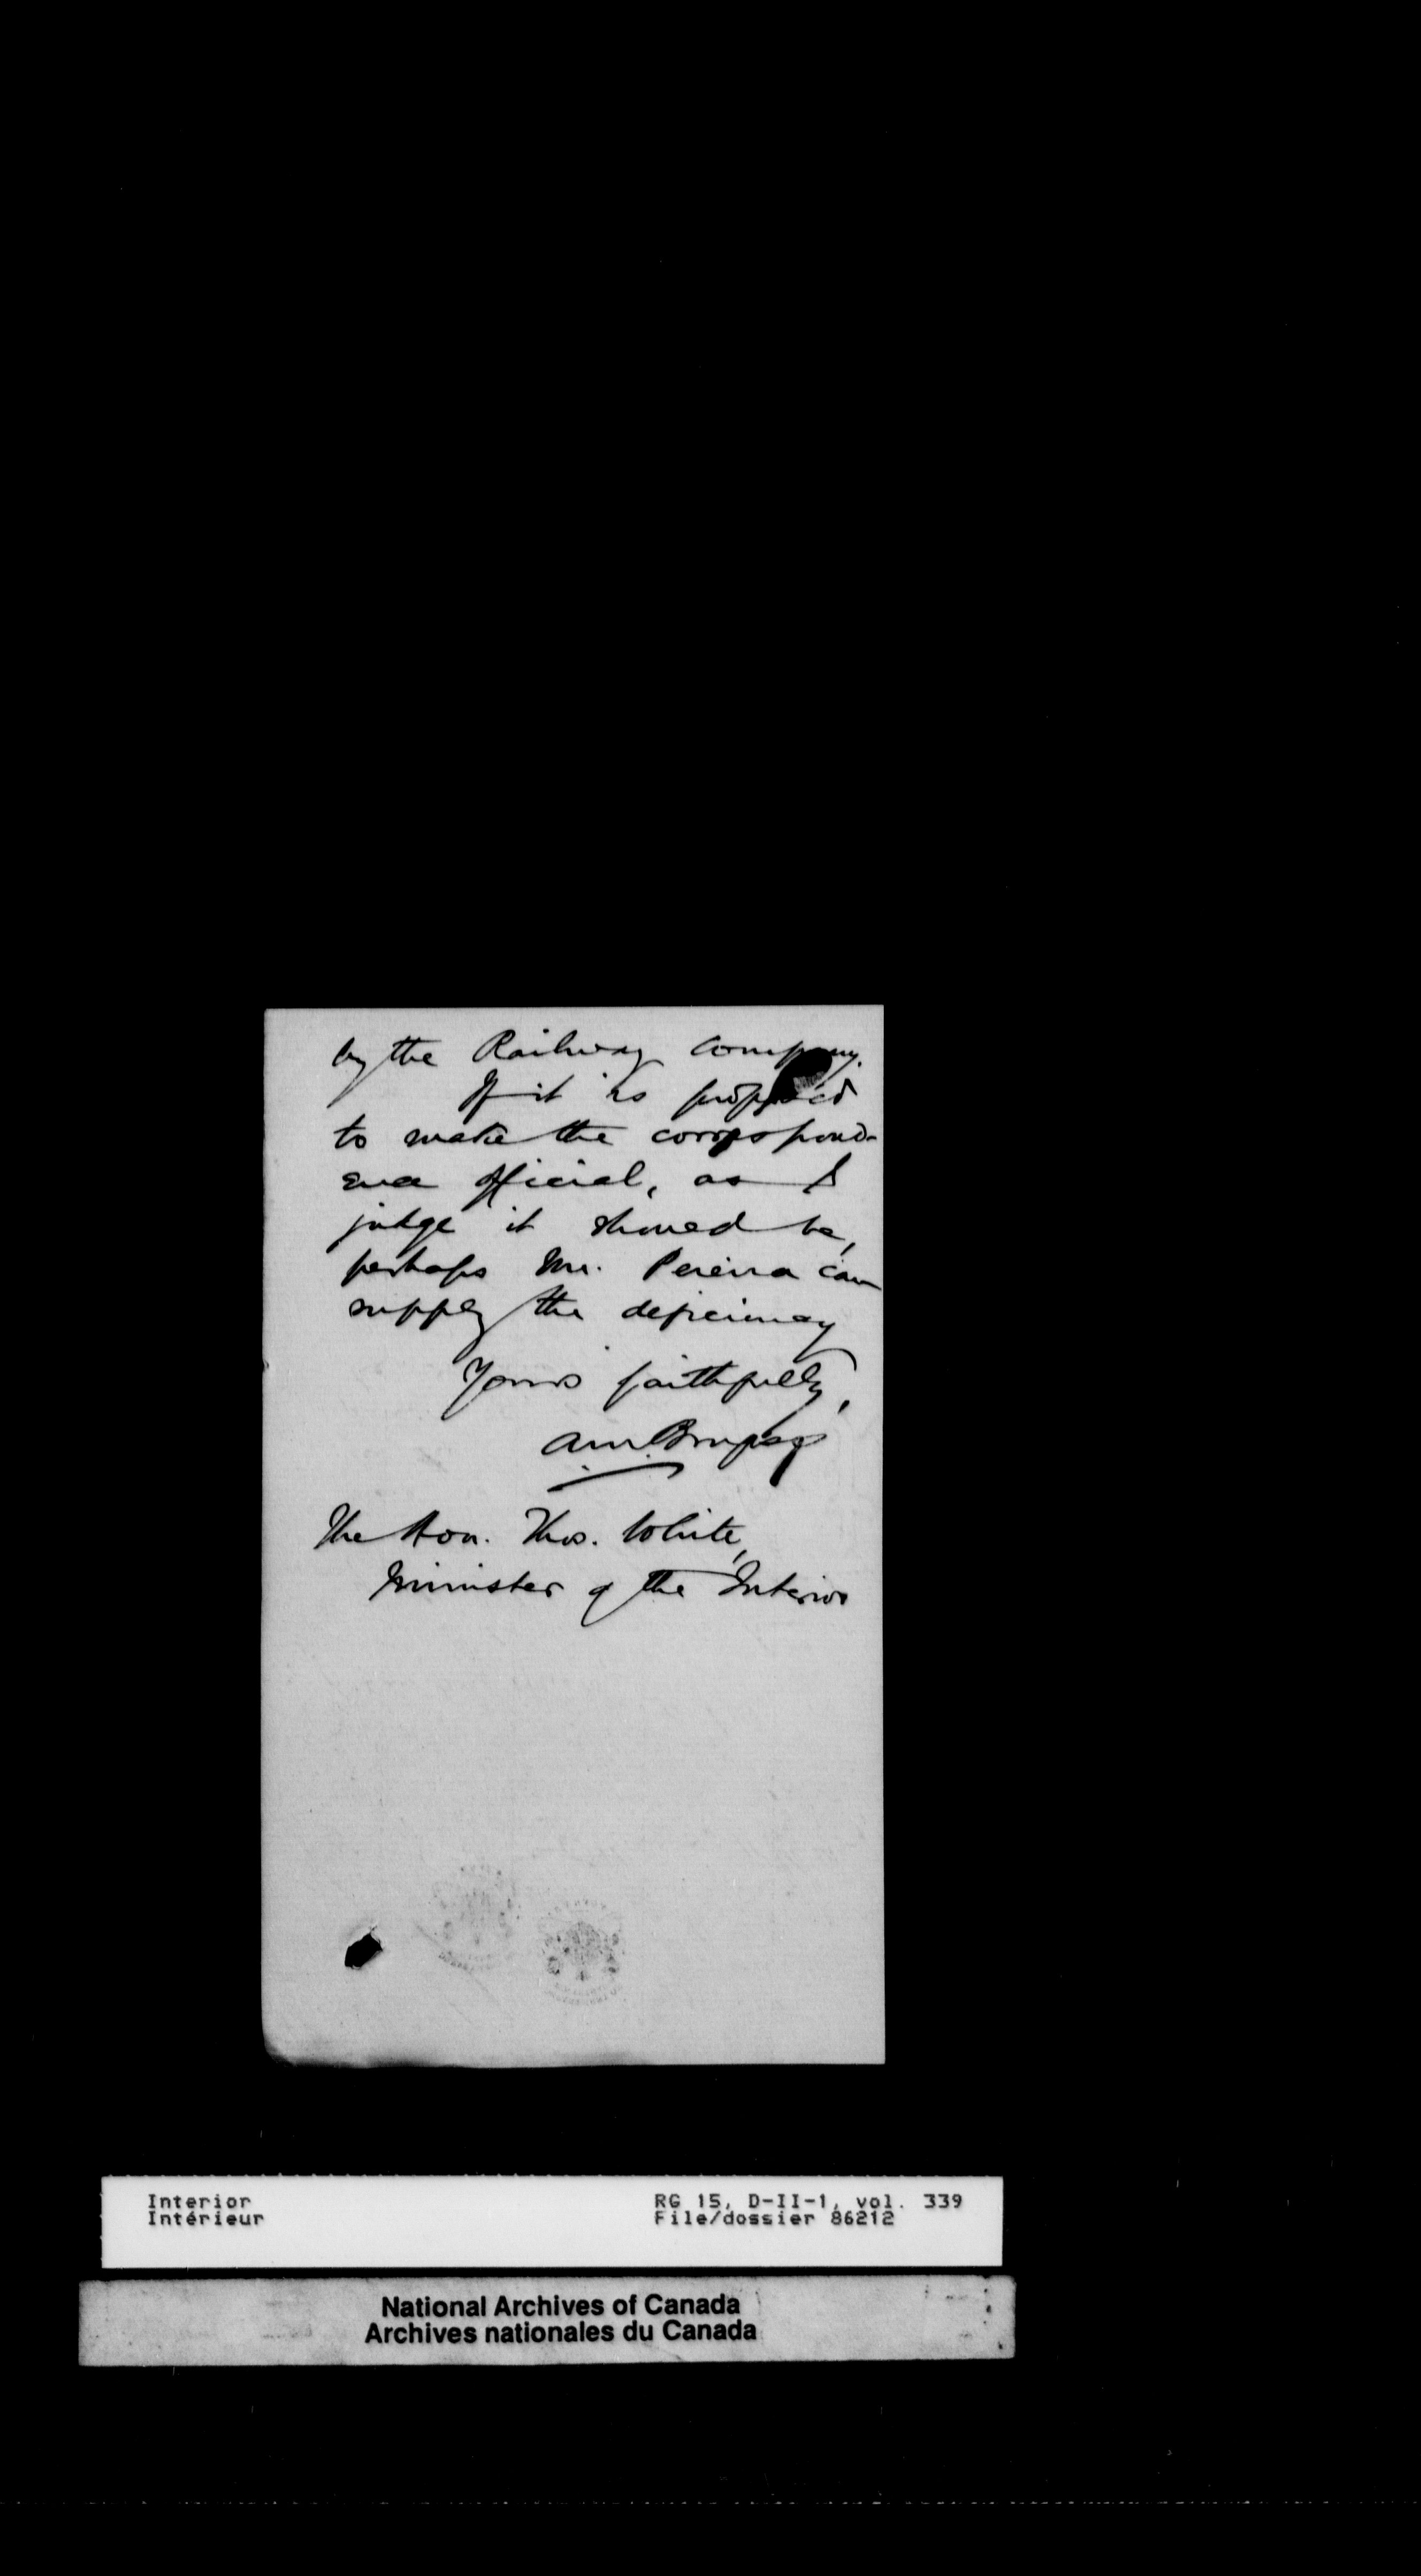 by the Railway Company.
If it is proposed
to make the correspond-
ence official, as I
judge it should be,
perhaps Mr. Pereira can
supply the deficiency
Yours faithfully,
AM Burgess
The Hon. Thos. White,
Minister of the Interior
Interior
Intérieur
RG 15, D-II-1, vol. 339
File/dossier 86212
National Archives of Canada
Archives nationales du Canada